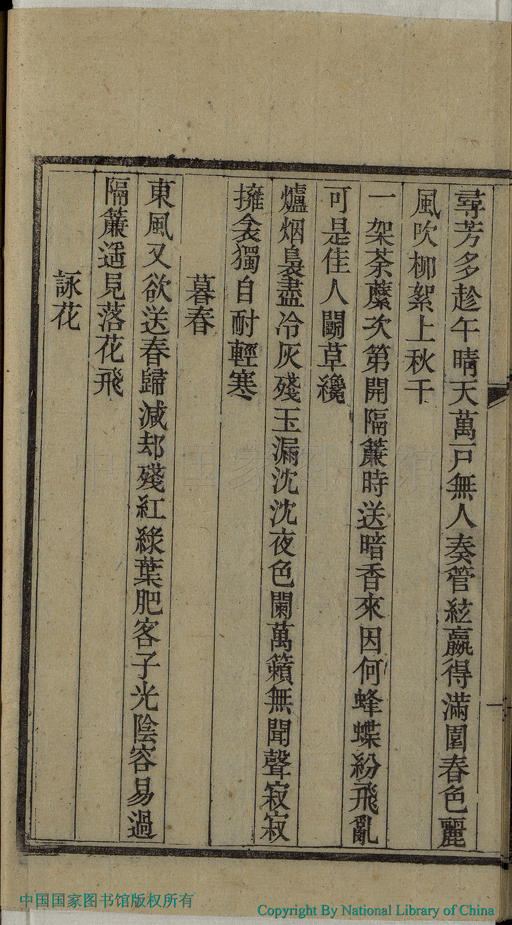 尋芳多趁午晴天萬戶無人奏管絃嬴得滿園春色麗
風吹柳絮上秋千
一架荼蘼次第開隔簾時送暗香來因何蜂蝶紛飛亂
可是佳人鬭草纔
爐烟裊盡冷灰殘玉漏沈沈夜色闌萬籟無聞聲寂寂
擁衾獨自耐輕寒
暮春
東風又欲送春歸減却殘紅綠葉肥客子光陰容易過
隔簾遥見落花飛
詠花
中国国家图书馆版权所有
Copyright By National Library of China